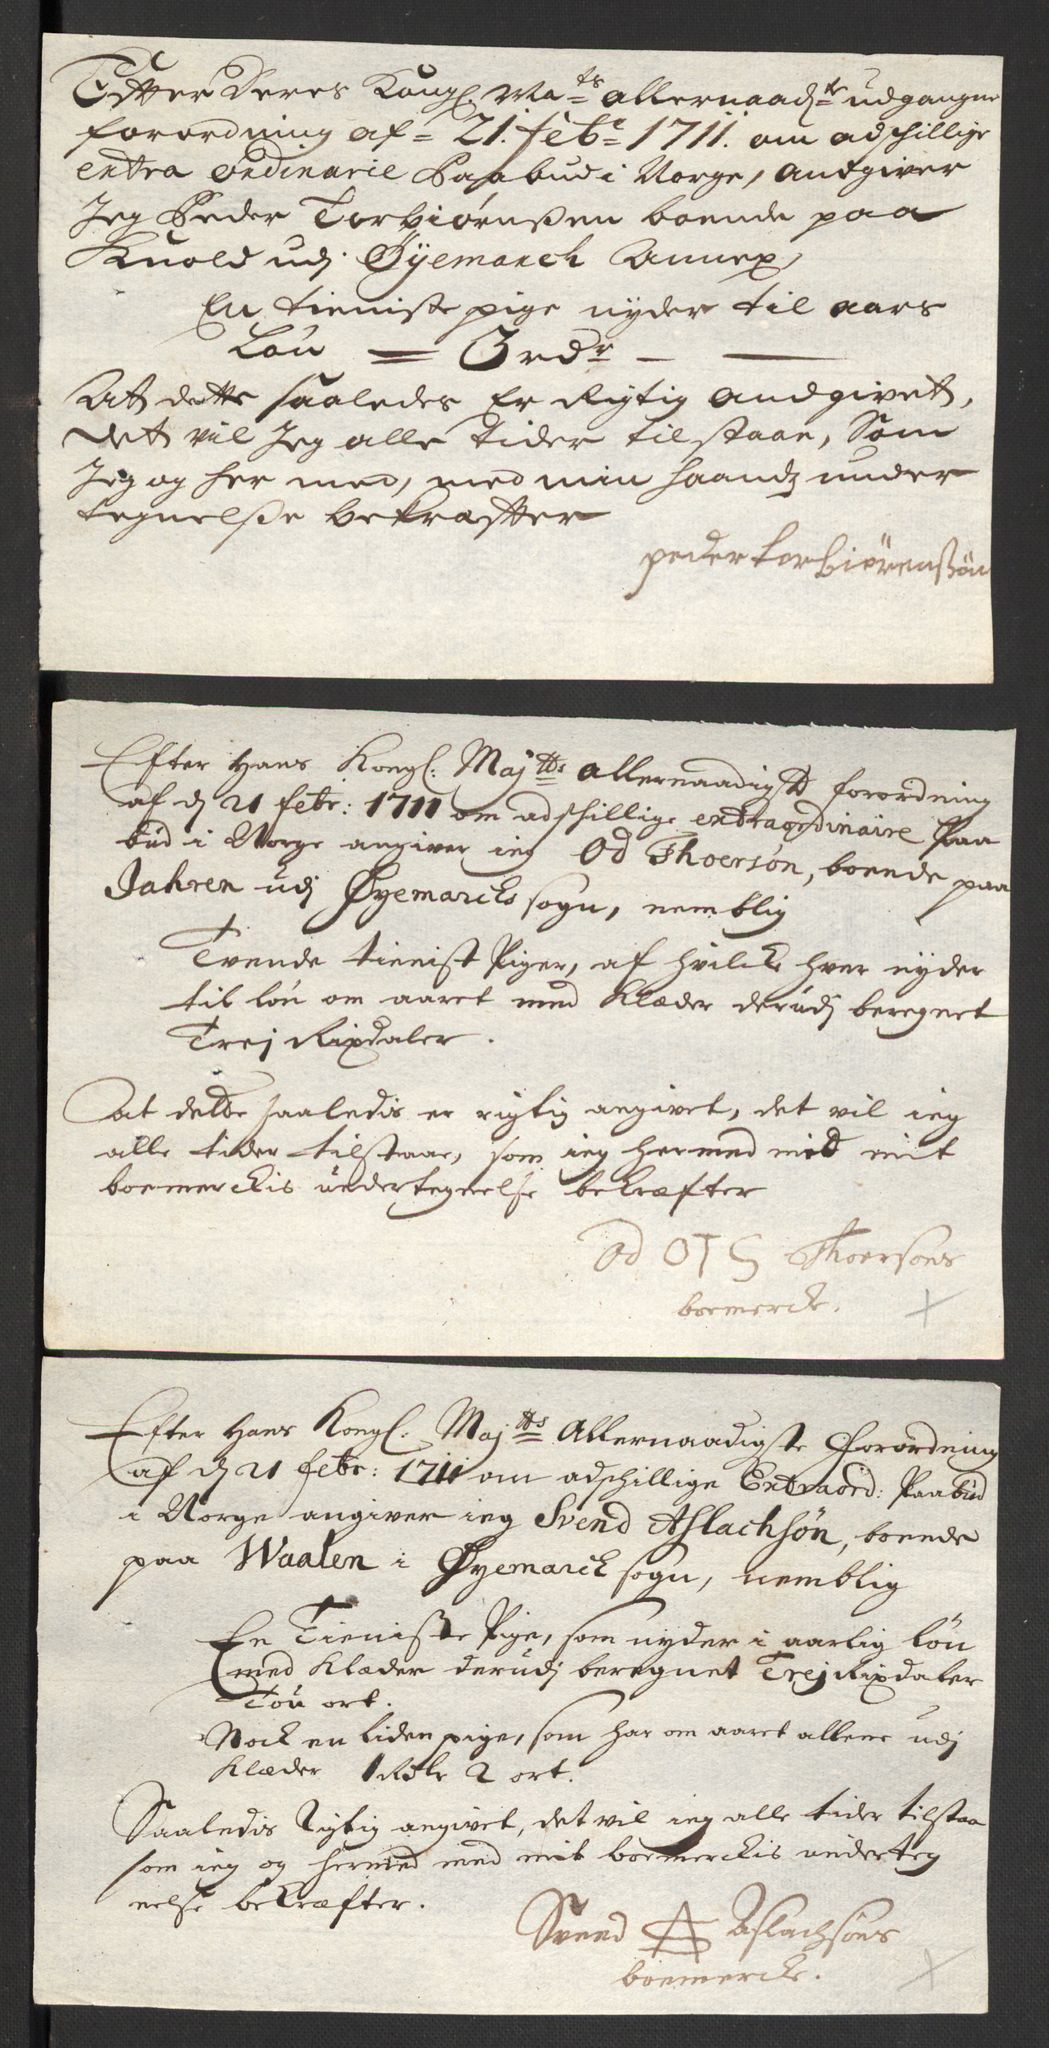 Efter Deres Kongl. Ma=ts allernaad=ste udgangne
forordning af= 21. feb=r 1711. om adschillige
extra ordinarie Paabud i Norge, Andgiver
Jeg Peder Torbiørnßen boende paa
Kuold udj Øyemarch Annex,
En tieniste pige nyder til aars
Løn = 3 rdr — —
At dette saaledes Er Rigtig Andgivet,
det vil Jeg alle Tider tilstaae, Som
Jeg og her med, med min haandz under
tegnelße bekræffter
peder torbiørenßøn
Efter Hans Kongl: Maj=tts allernaadigste forordning
af d 21 febr: 1711 om adschillige extraordinaire Paa
bud i Norge angiver ieg Od Thoersøn, boende paa
Jahren udj Øyemarcks sogn, nemblig
Tvende tienist Piger, af hvilcke hver nyder
til løn om aaret med Klæder derudj beregnet
Trej Rixdaler.
At dette saaledis er rigtig angivet, det vil ieg
alle tider tilstaae, som ieg hermed med mit
boemerckis undertegnelse bekræfter
Od OTS Thoersøns
boemercke.
Efter Hans Kongl. Maj=tts Allernaadigste Forordning
af d 21 febr: 1711 om adschillige Extraord: Paabud
i Norge angiver ieg Svend Aslachsøn, boende
paa Waalen i Øyemarck sogn, nemblig
En Tieniste Pige, som nyder i aarlig løn
med Klæder derudj beregnet Trej Rixdaler
Tou ort.
Nock en liden pige, som har om aaret allene udj
Klæder 1 Rdlr 2 ort.
Saaledis Rigtig angivet, det vil ieg alle tider tilstaa
som ieg og hermed med mit boemerckis underteg
nelse bekræfter.
Svend A Aslachsøns
boemercke.